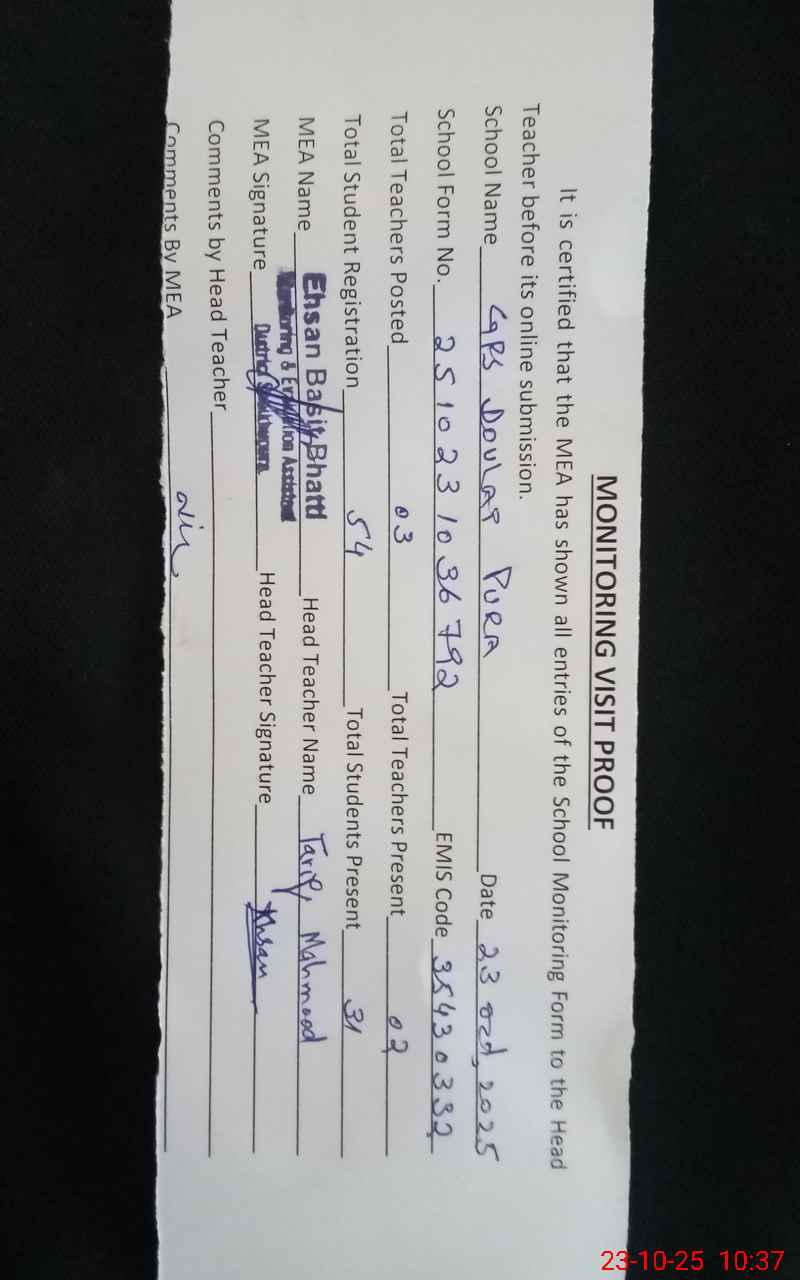 MONITORING VISIT PROOF
It is certified that the MEA has shown all entries of the School Monitoring Form to the Head
Teacher before its online submission.
School Name GPS Doulat PURA Date 23 Oct, 2025
School Form No. 251023 1036792 EMIS Code 35430332
Total Teachers Posted 03 Total Teachers Present 02
Total Student Registration 54 Total Students Present 31
MEA Name Ehsan Basit Bhatti Head Teacher Name Tariq Mahmood
Monitoring & Evaluation Assistant
MEA Signature District Head Teacher Signature Ahsan
Comments by Head Teacher
Comments By MEA
23-10-25 10:37